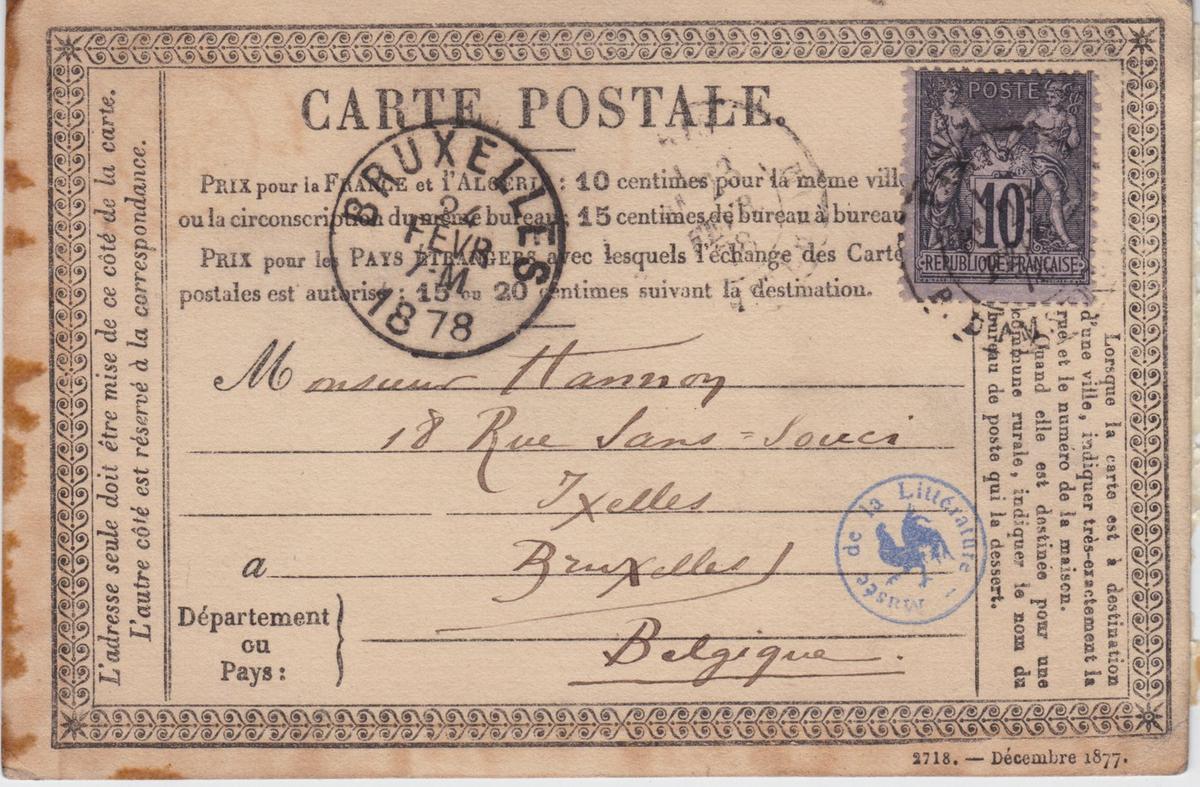 CARTE POSTALE.
PRIX pour la FRANCE et l'ALGERIE : 10 centimes pour la même ville
ou la circonscription du même bureau; 15 centimes de bureau à bureau
PRIX pour les PAYS ÉTRANGERS avec lesquels l'échange des Carte
postales est autorisé : 15 ou 20 centimes suivant la destination.
BRUXELLES
24
FEVR
7-M
1878
POSTE
10
REPUBLIQUE FRANÇAISE
Monsieur Hannon
18 Rue Sans-Souci
Ixelles
a Bruxelles
Département
ou
Pays :
Belgique.
L'adresse seule doit être mise de ce côté de la carte.
L'autre côté est réservé à la correspondance.
Lorsque la carte est à destination
d'une ville, indiquer très-exactement la
rue et le numéro de la maison.
Quand elle est destinée pour une
commune rurale, indiquer le nom du
bureau de poste qui la dessert.
Musée de la Littérature
2718. — Décembre 1877.